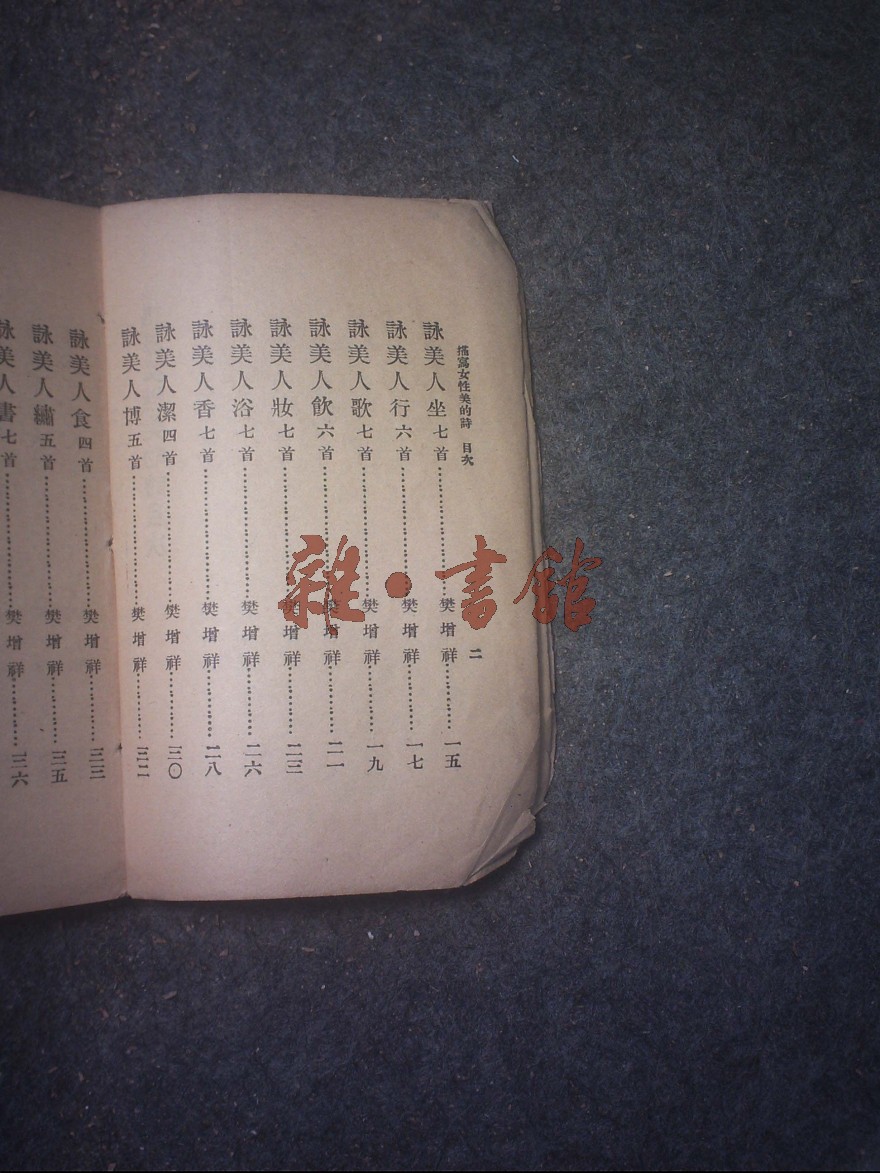 描寫女性美的詩 目次 二
詠美人坐七首 樊增祥 一五
詠美人行六首 樊增祥 一七
詠美人歌七首 樊增祥 一九
詠美人飲六首 樊增祥 二一
詠美人妝七首 樊增祥 二三
詠美人浴七首 樊增祥 二六
詠美人香七首 樊增祥 二八
詠美人潔四首 樊增祥 三〇
詠美人博五首 樊增祥 三二
詠美人食四首 樊增祥 三三
詠美人繡五首 樊增祥 三五
詠美人書七首 樊增祥 三六
雜·書館